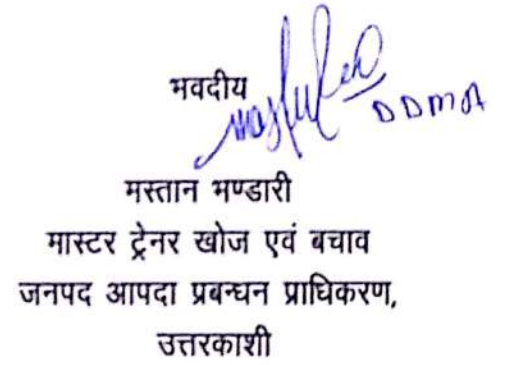 भवदीय
DDMA
मस्तान भण्डारी
मास्टर ट्रेनर खोज एवं बचाव
जनपद आपदा प्रबन्धन प्राधिकरण,
उत्तरकाशी